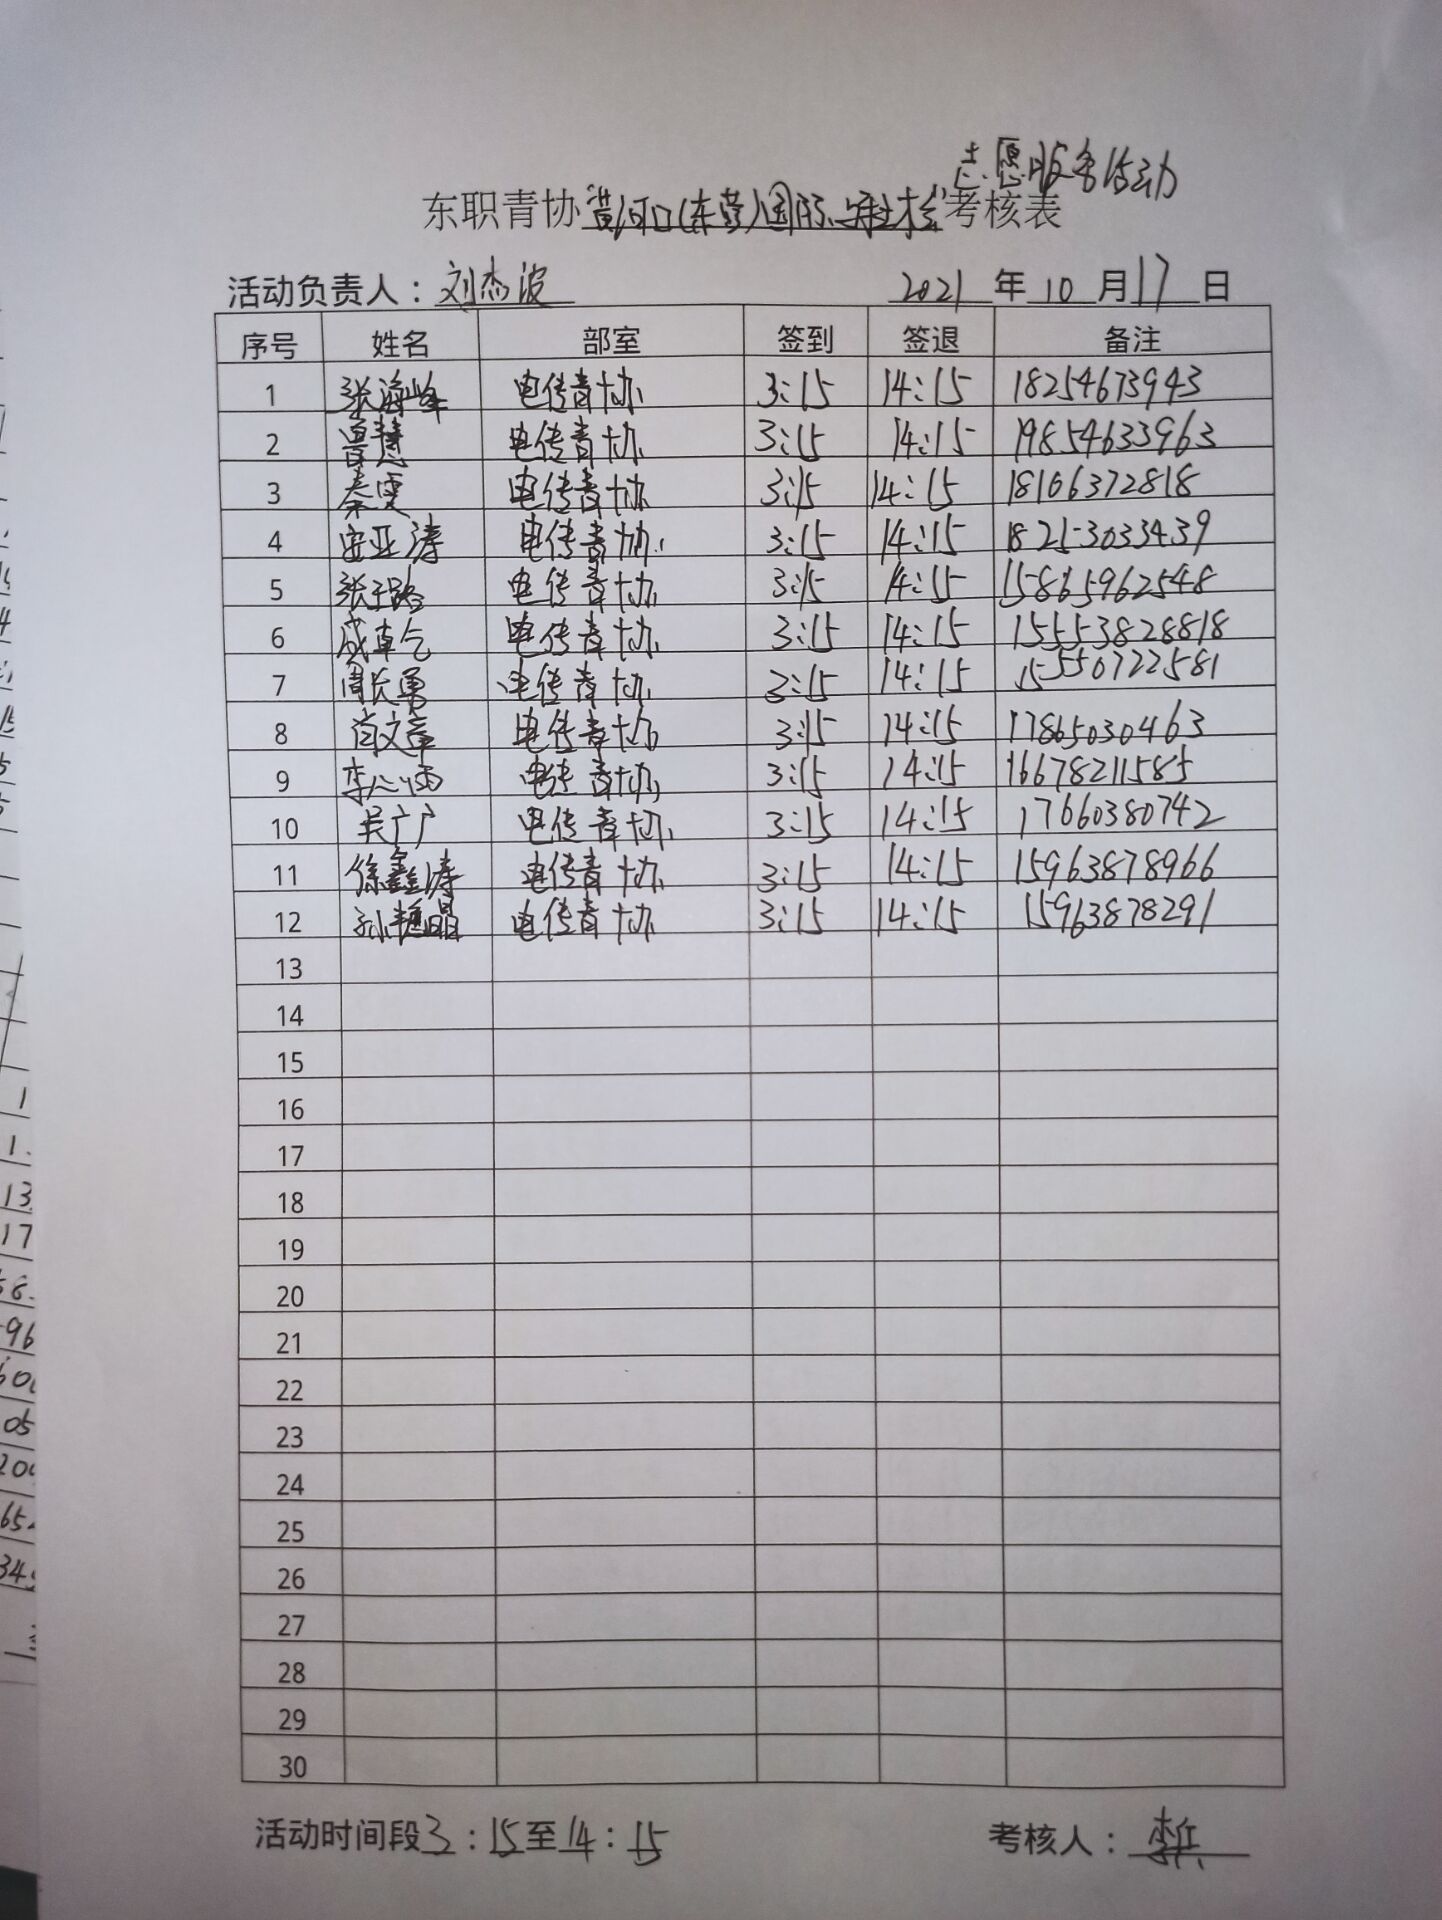 志愿服务活动
东职青协黄河口(东营)国际马拉松考核表
活动负责人：刘杰波 2021年10月17日
序号 姓名 部室 签到 签退 备注
1 张海峰 电传青协 3:15 14:15 18254673943
2 曹慧 电传青协 3:15 14:15 19854633963
3 秦雯 电传青协 3:15 14:15 18106372818
4 安亚涛 电传青协 3:15 14:15 18253033439
5 张子路 电传青协 3:15 14:15 15865962548
6 成卓 电传青协 3:15 14:15 15553828818
7 周长勇 电传青协 3:15 14:15 15550722581
8 肖文章 电传青协 3:15 14:15 17865030463
9 李心雨 电传青协 3:15 14:15 16678211585
10 吴广 电传青协 3:15 14:15 17660380742
11 徐鑫涛 电传青协 3:15 14:15 15963878966
12 孙晶 电传青协 3:15 14:15 15963878291
13
14
15
16
17
18
19
20
21
22
23
24
25
26
27
28
29
30
活动时间段3：15至14：15 考核人：